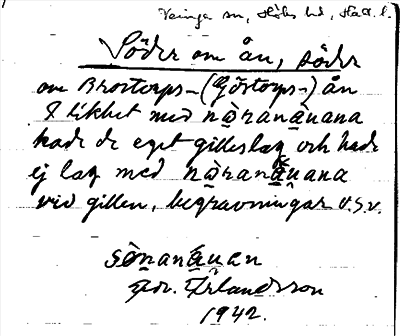 Veinge sn, Höks hd, Hall. l.
Söder om ån, söder
om Brostorps- (Göstorps-) ån
I likhet med nòranáuana
hade de eget gilleslag och hade
ej lag med nòranáuana
vid gillen, begravningar o.s.v.
sònanáuan
Erlandsson
1942.